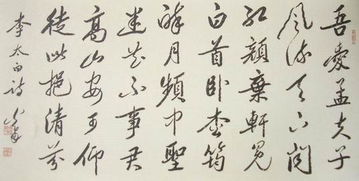 吾愛孟夫子
風流天下聞
紅顏棄軒冕
白首臥松雲
醉月頻中聖
迷花不事君
高山安可仰
徒此挹清芬
李太白詩